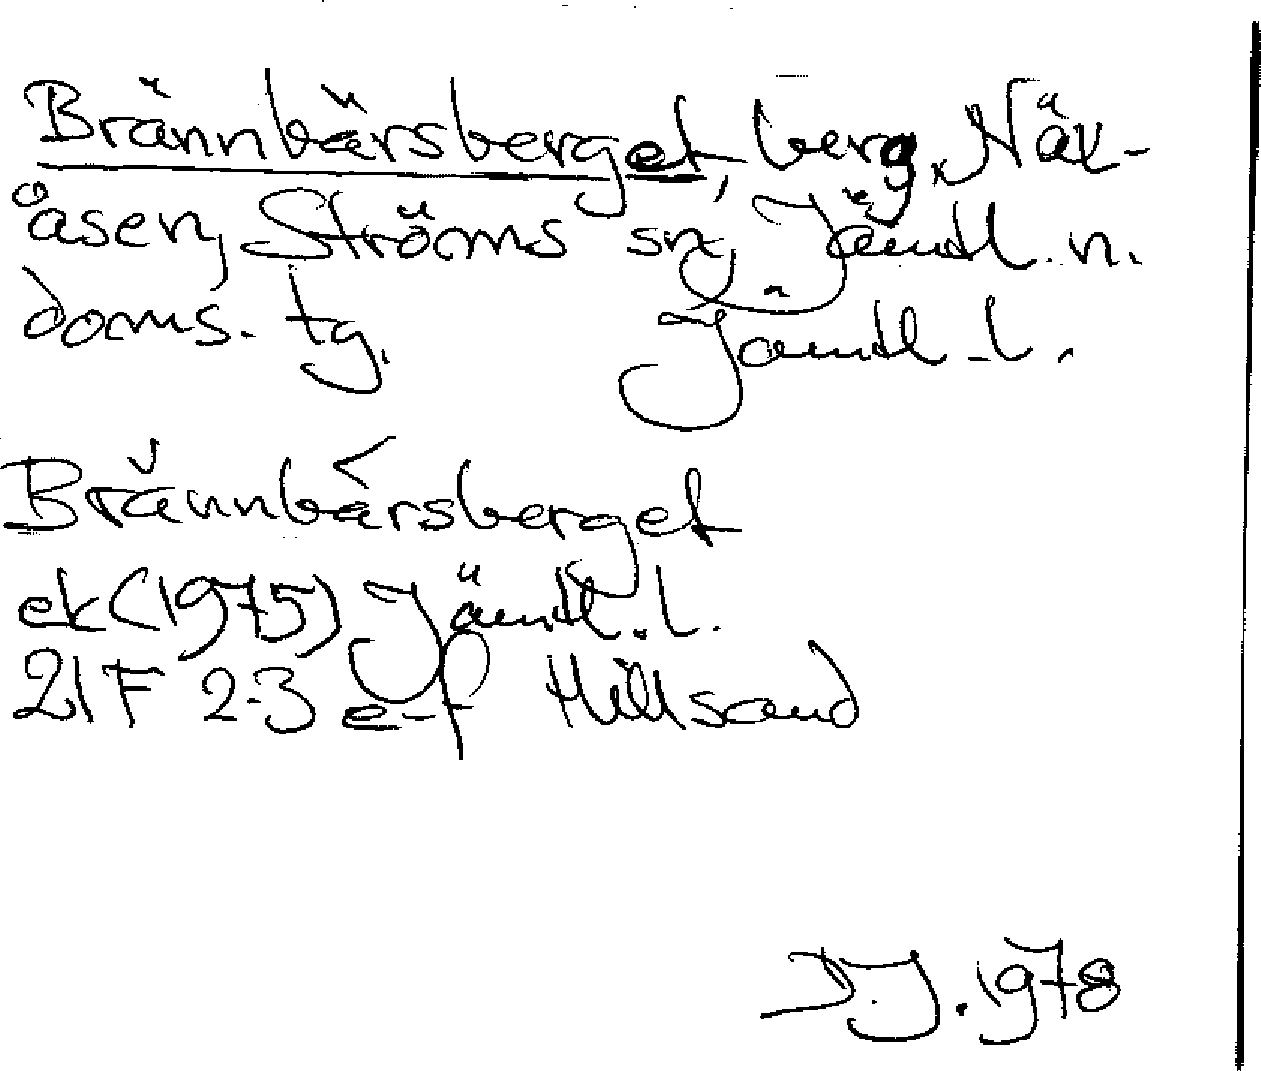 Brännbärsberget, berg, Näv-
åsen, Ströms sn, Jämtl. n.
doms. tg. Jämtl. l.
Brännbärsberget
ek (1975) Jämtl. l.
21F 2-3 e-f Hillsand
D.J. 1978